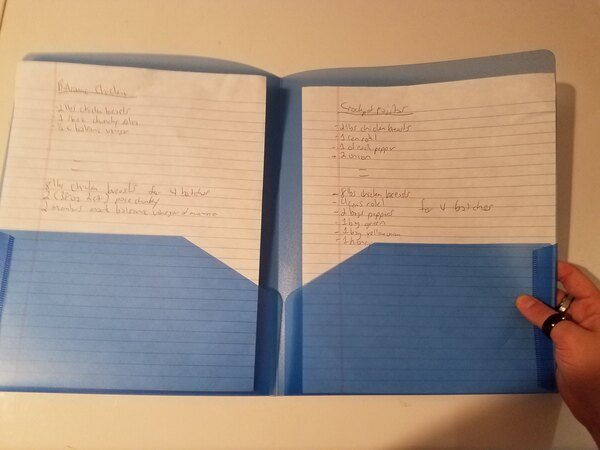 Balsamic Chicken
- 2 lbs chicken breasts
- 1 chunky salsa
- balsamic vinegar
=
8 lbs chicken breasts for 4 batches
2 pace chunky
2 balsamic vinegar
Crockpot
- 2 lbs chicken breasts
- 1 can rotel
- 1 of each pepper
- 2 onion
=
- 8 lbs chicken breasts
- 4 cans rotel
for 4 batches
- 2 bags peppers
- 1 bag green
- 1 bag yellow onion
- 1